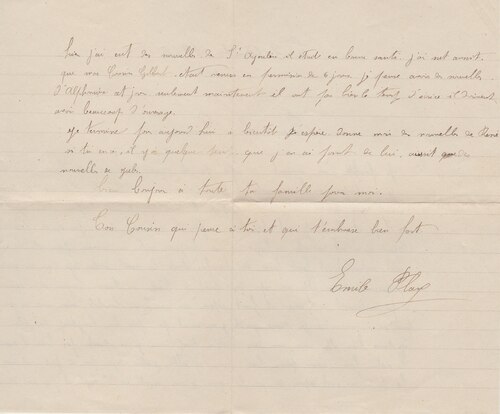 hier j'ai eut des nouvelles de St il etait en bonne santé j'ai sut aussi
que mon Cousin était venu en permission de 6 jours je pense avoir des nouvelles
d'Alphonse ces jours seulement maintenant il ont pas bien le temps d'ecrire il doivent
avoir beaucoup d'ouvrage
Je termine pour aujourd'hui a bientôt j'espère donne moi des nouvelles de René
si tu en a, il y a quelque que j'en ai point de lui,
nouvelles de
Bonjour à toute ta famille pour moi.
Ton Cousin qui pense a toi et qui t'embrasse bien fort
Emile